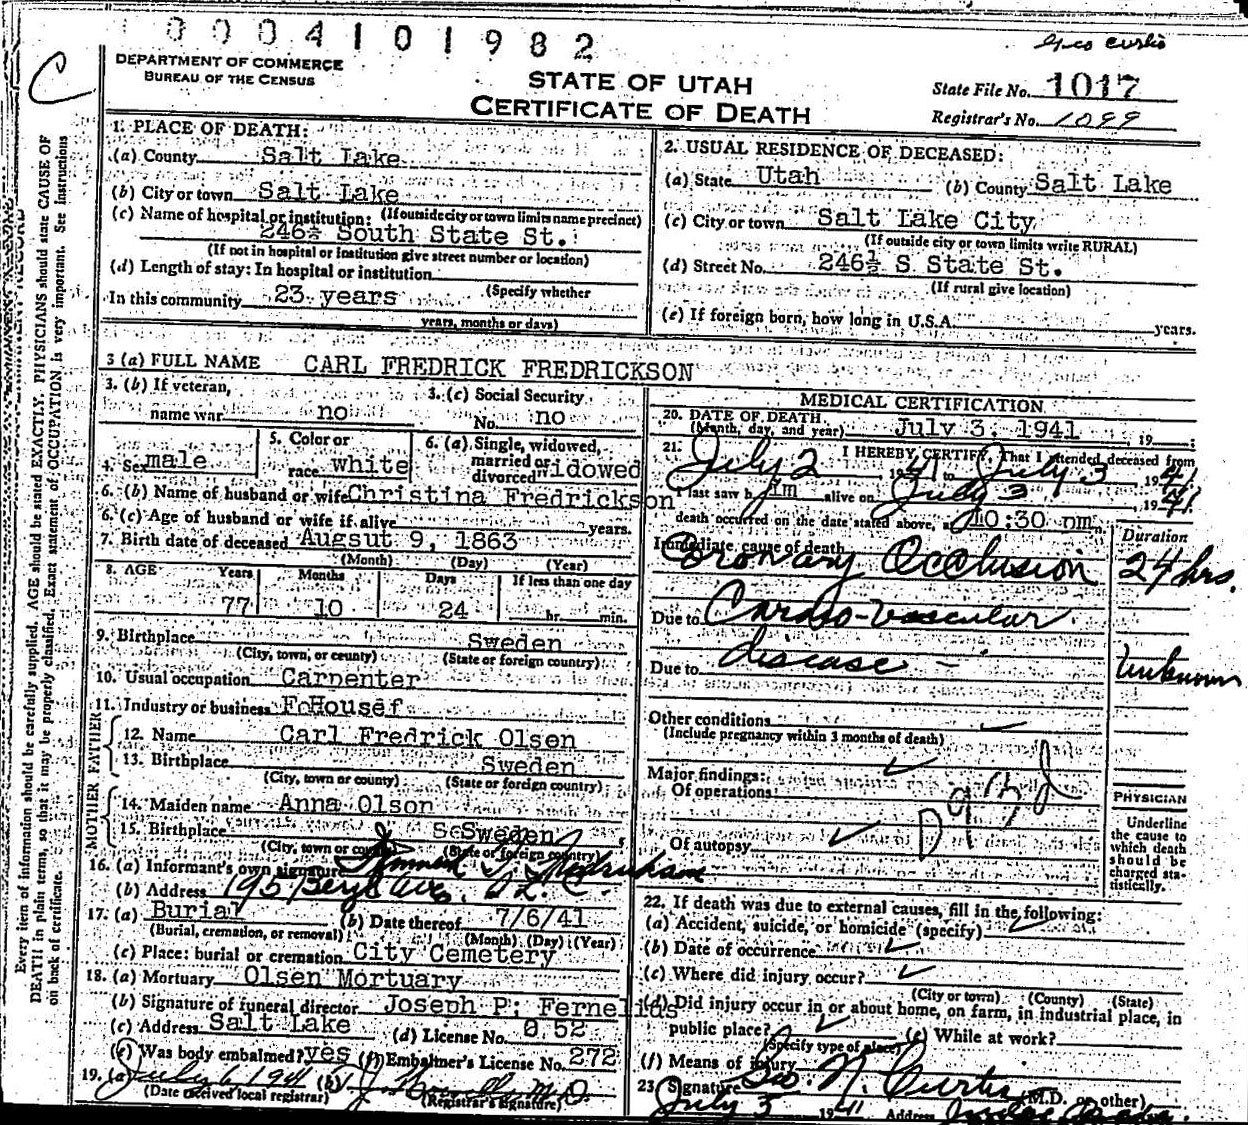 0004101982
Geo Curtis
C
DEPARTMENT OF COMMERCE
BUREAU OF THE CENSUS
STATE OF UTAH
CERTIFICATE OF DEATH
State File No. 1017
Registrar's No. 1099
Every item of information should be carefully supplied. AGE should be stated EXACTLY. PHYSICIANS should state CAUSE OF
DEATH in plain terms, so that it may be properly classified. Exact statement of OCCUPATION is very important. See instructions
on back of certificate.
1. PLACE OF DEATH:
(a) County Salt Lake
(b) City or town Salt Lake
(c) Name of hospital or institution: (If outside city or town limits name precinct)
246½ South State St.
(If not in hospital or institution give street number or location)
(d) Length of stay: In hospital or institution
In this community 23 years (Specify whether
years, months or days)
2. USUAL RESIDENCE OF DECEASED:
(a) State Utah (b) County Salt Lake
(c) City or town Salt Lake City
(If outside city or town limits write RURAL)
(d) Street No. 246½ S State St.
(If rural give location)
(e) If foreign born, how long in U.S.A. years.
3 (a) FULL NAME CARL FREDRICK FREDRICKSON
3. (b) If veteran,
name war no
3. (c) Social Security
No. no
4. Sex male
5. Color or
race white
6. (a) Single, widowed,
married or
divorced widowed
6. (b) Name of husband or wife Christina Fredrickson
6. (c) Age of husband or wife if alive years.
7. Birth date of deceased Augsut 9, 1863
(Month) (Day) (Year)
8. AGE Years Months Days If less than one day
77 10 24 hr. min.
9. Birthplace Sweden
(City, town, or county) (State or foreign country)
10. Usual occupation Carpenter
11. Industry or business F Housef
FATHER
12. Name Carl Fredrick Olsen
13. Birthplace Sweden
(City, town or county) (State or foreign country)
MOTHER
14. Maiden name Anna Olson
15. Birthplace Sweden
(City, town or county) (State or foreign country)
16. (a) Informant's own signature
(b) Address 195 Beryl Ave. S. L. C.
17. (a) Burial (b) Date thereof 7/6/41
(Burial, cremation, or removal) (Month) (Day) (Year)
(c) Place: burial or cremation City Cemetery
18. (a) Mortuary Olsen Mortuary
(b) Signature of funeral director Joseph P. Fernelius
(c) Address Salt Lake (d) License No. 0 52
(e) Was body embalmed? yes (f) Embalmer's License No. 272
19. (a) July 6 1941 (b) M.D.
(Date received local registrar) (Registrar's signature)
MEDICAL CERTIFICATION
20. DATE OF DEATH
(Month, day, and year) July 3, 1941, 19
21. I HEREBY CERTIFY, That I attended deceased from
July 2, 1941 to July 3 1941
I last saw h im alive on July 3, 1941
death occurred on the date stated above, at 10:30 pm
Immediate cause of death Duration
Coronary Occlusion 24 hrs.
Due to Cardio-vascular
disease - Unknown
Due to
Other conditions
(Include pregnancy within 3 months of death)
Major findings:
Of operations
Of autopsy
PHYSICIAN
Underline
the cause to
which death
should be
charged sta-
tistically.
22. If death was due to external causes, fill in the following:
(a) Accident, suicide, or homicide (specify)
(b) Date of occurrence
(c) Where did injury occur?
(City or town) (County) (State)
(d) Did injury occur in or about home, on farm, in industrial place, in
public place? (e) While at work?
(Specify type of place)
(f) Means of injury
23 Signature Geo. N. Curtis (M.D. or other)
July 5 1941 Address